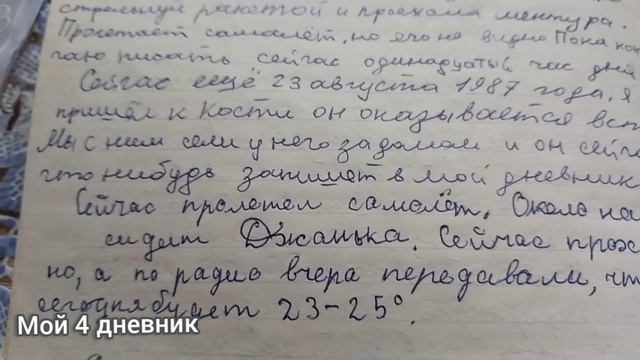 стрельнул ракетой и проехала ментура.
Пролетает самолёт, но его не видно Пока кон
чаю писать сейчас одинадцатый час дня
Сейчас ещё 23 августа 1987 года, я
пришёл к Кости он оказывается вст
Мы с ним сели у него за домом и он сейча
что нибудь запишет в мой дневник
Сейчас пролетел самолёт. Около на
сидит Джанька. Сейчас прох
но, а по радио вчера передавали, чт
сегодня будет 23-25°.
Мой 4 дневник